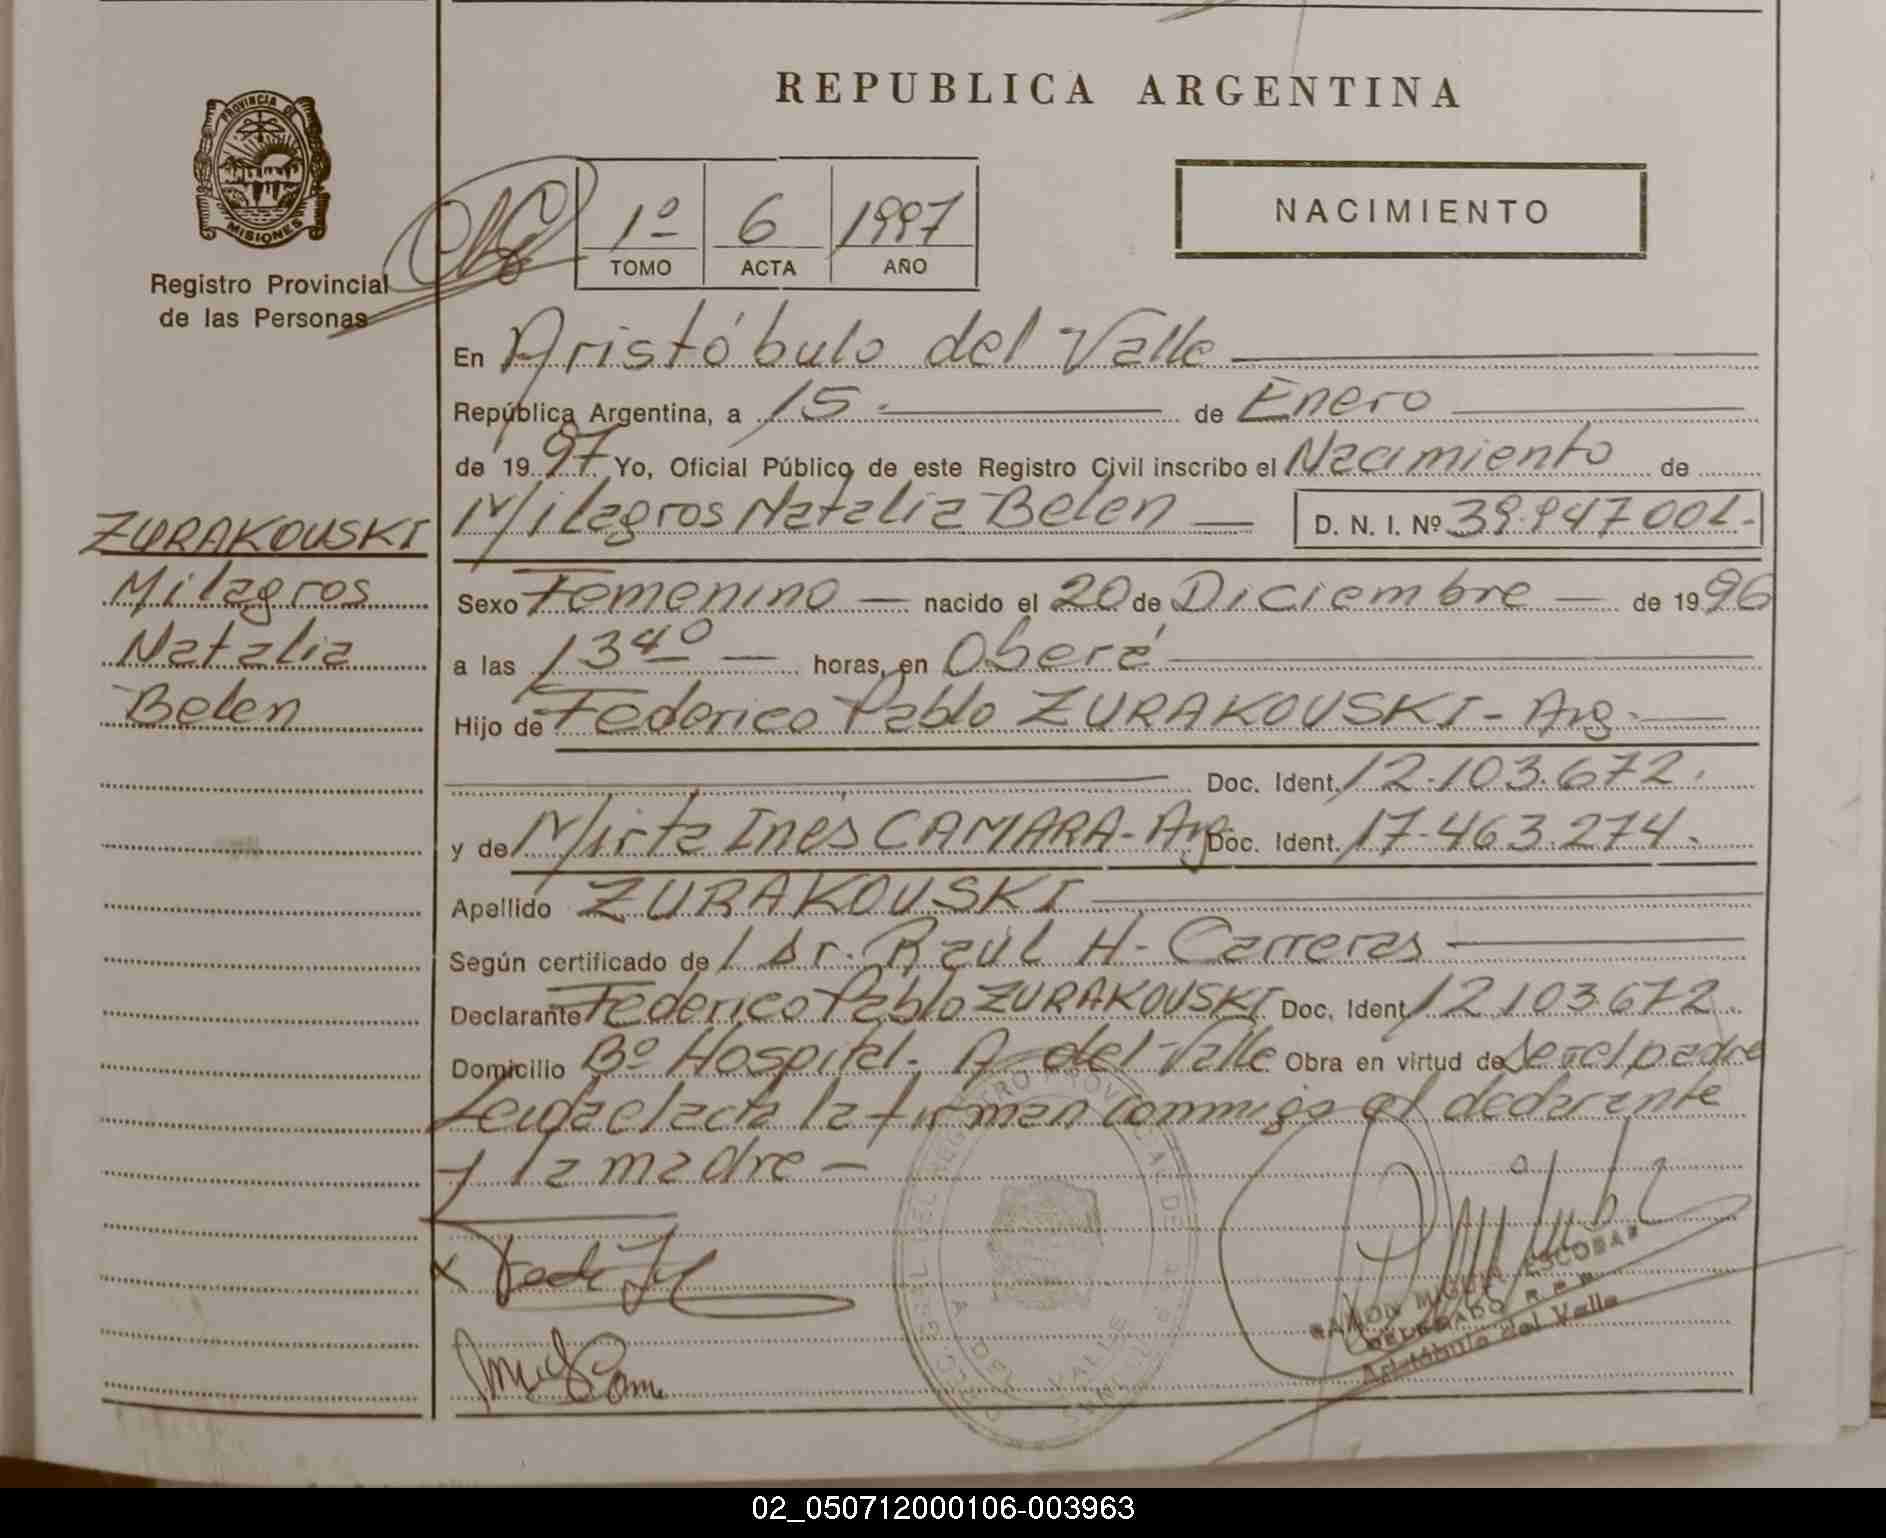 REPUBLICA ARGENTINA
PROVINCIA DE
MISIONES
Registro Provincial
de las Personas
1º 6 1997
TOMO ACTA AÑO
NACIMIENTO
En Aristóbulo del Valle
República Argentina, a 15 de Enero
de 1997 Yo, Oficial Público de este Registro Civil inscribo el Nacimiento de
Milagros Natalia Belen D. N. I. Nº 39.947.001.-
ZURAKOUSKI
Milagros
Natalia
Belen
Sexo Femenino — nacido el 20 de Diciembre — de 1996
a las 13 40 — horas, en Oberá
Hijo de Federico Pablo ZURAKOUSKI - Arg.
Doc. Ident. 12.103.672.
y de Mirta Inés CAMARA - Arg Doc. Ident. 17.463.274.
Apellido ZURAKOUSKI
Según certificado de l Dr. Raúl H. Carreras
Declarante Federico Pablo ZURAKOUSKI Doc. Ident. 12.103.672.
Domicilio Bº Hospital - A. del Valle Obra en virtud de ser el padre
Leida el acta la firman conmigo el declarante
y la madre —
RAMON MIGUEL ESCOBAR
DELEGADO R. P. P.
Aristóbulo del Valle
02_050712000106-003963